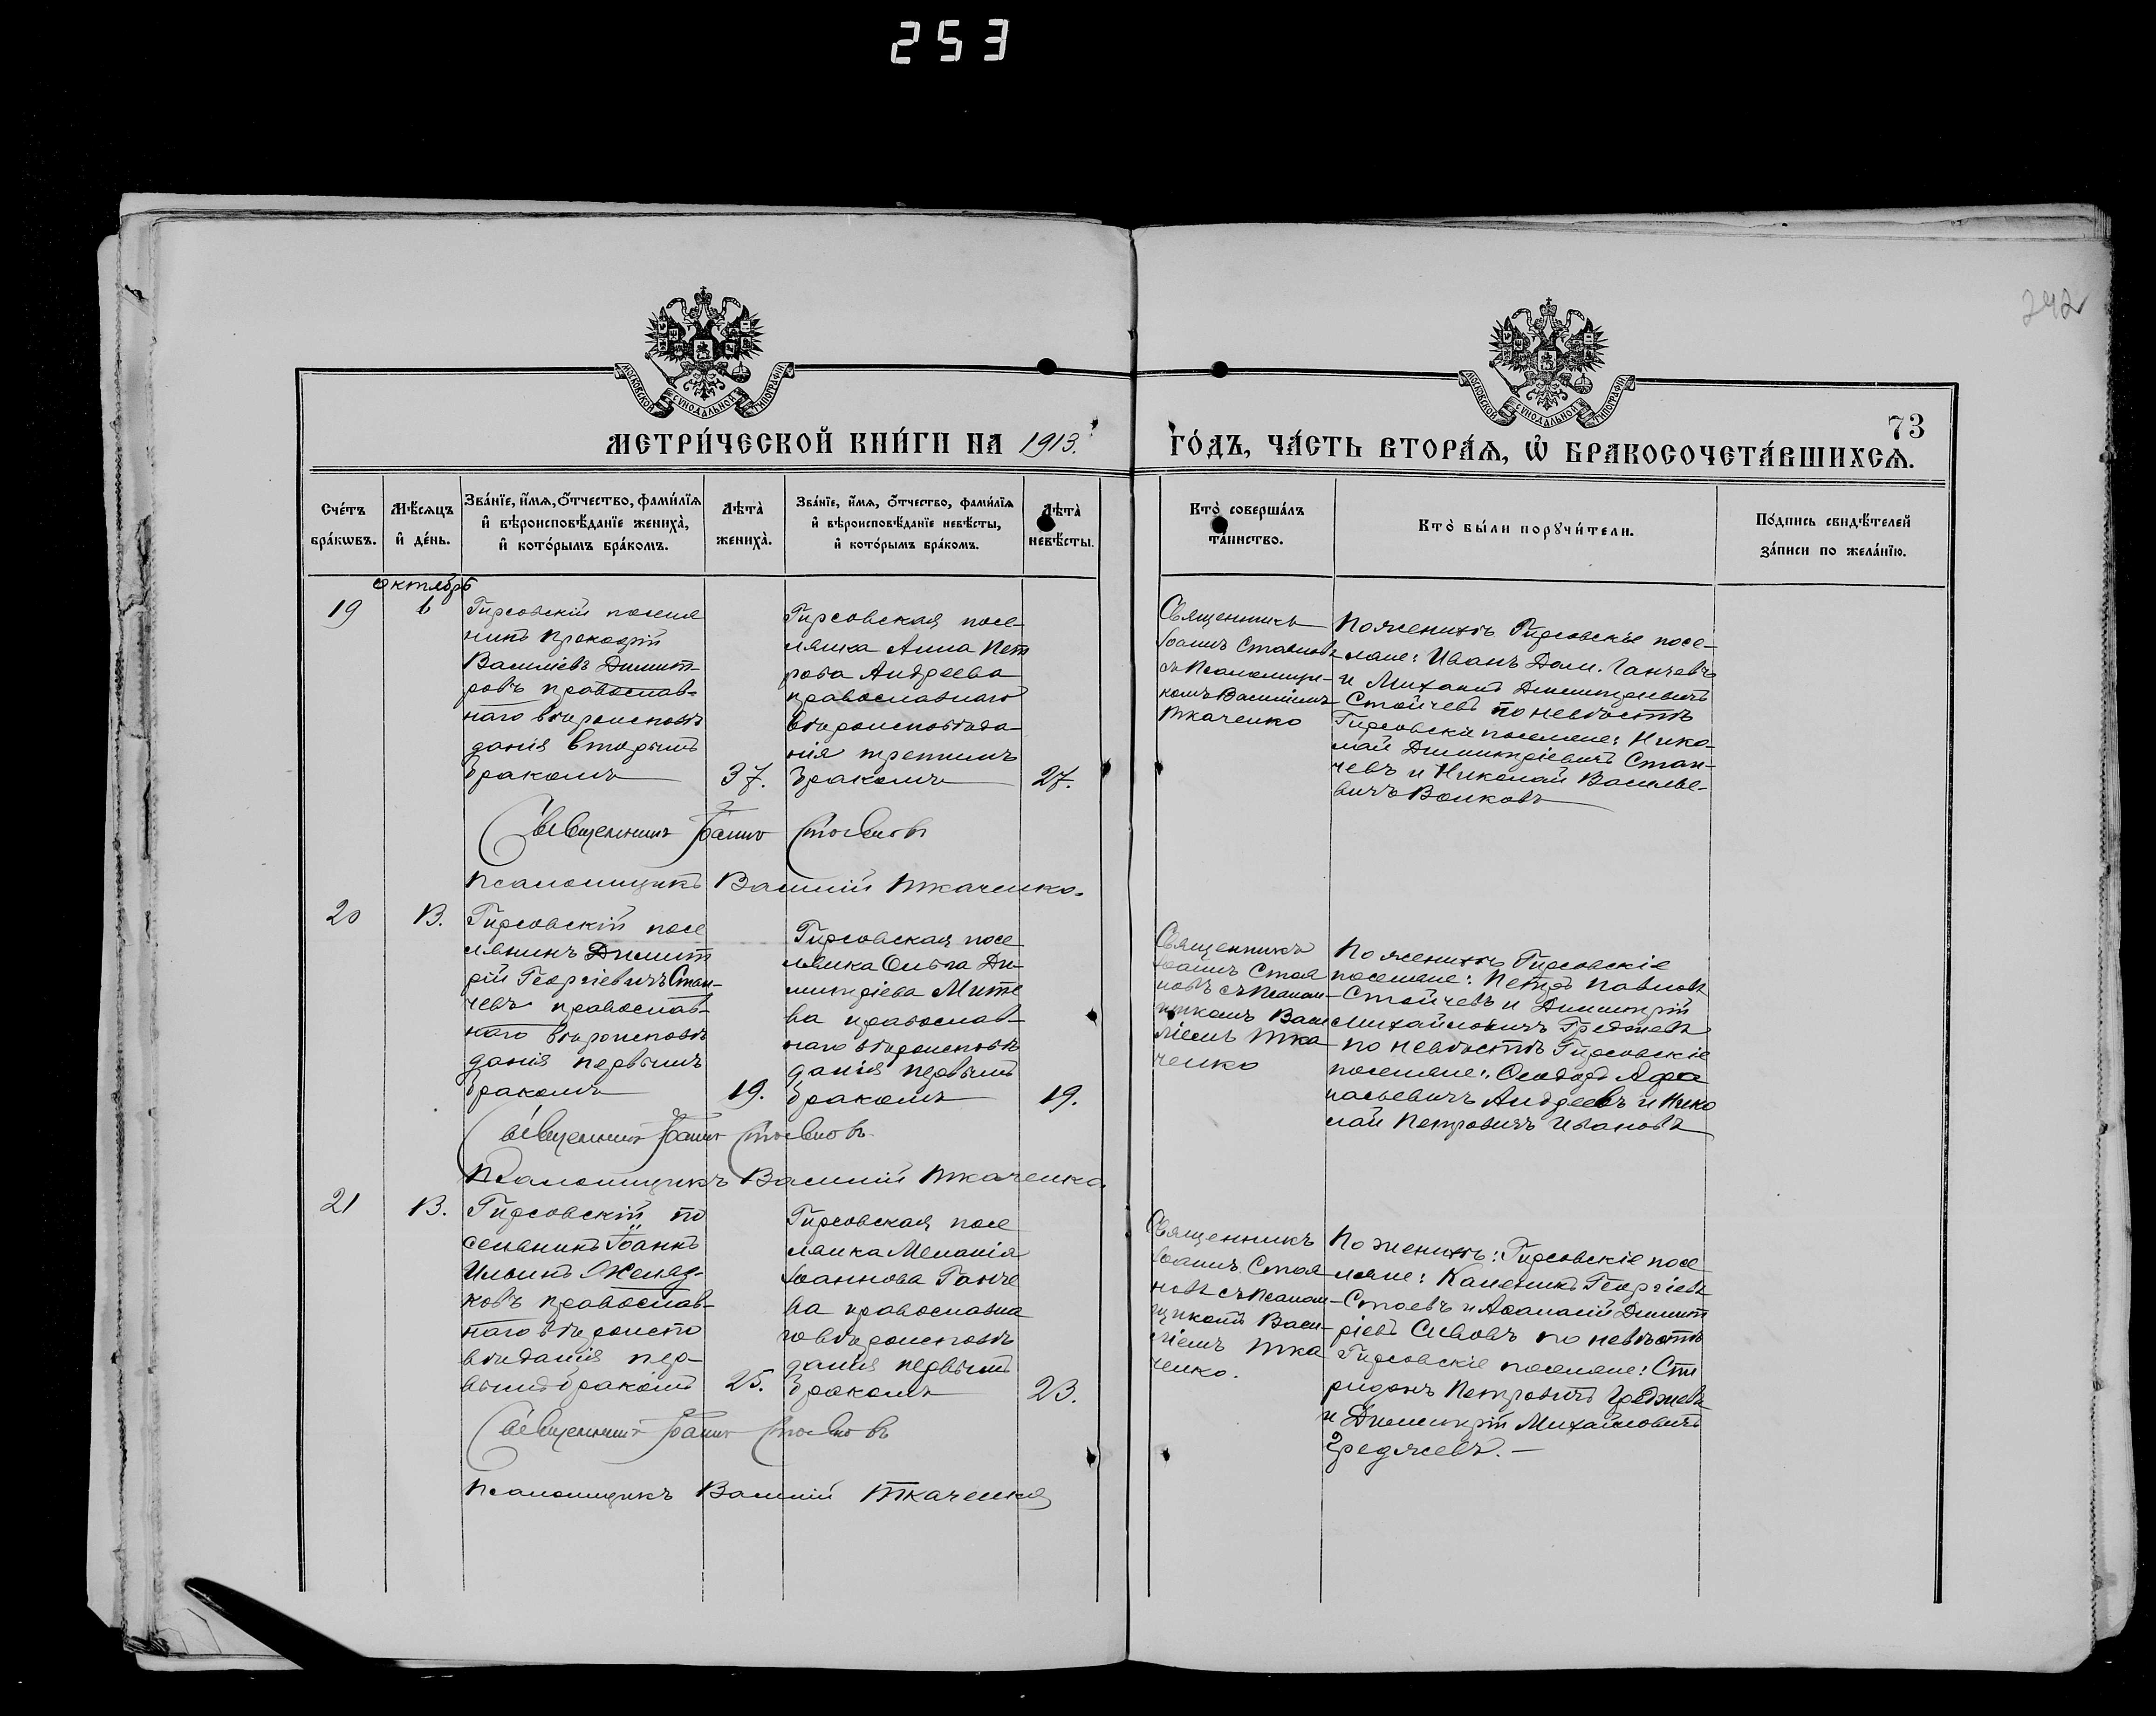 253
242
МОСКОВСКОЙ СУНОДАЛЬНОЙ ТИПОГРАФІИ
МОСКОВСКОЙ СУНОДАЛЬНОЙ ТИПОГРАФІИ
73
МЕТРИ́ЧЕСКОЙ КНИ́ГИ НА 1913.
ГО́ДЪ, ЧА́СТЬ ВТОРА́Ѧ, Ѽ БРАКОСОЧЕТА́ВШИХСѦ.
Сче́тъ бра́кѡвъ.
Мѣ́сѧцъ и҆ де́нь.
Зва́нїе, и҆́мѧ, ѻ҆́тчество, фами́лїѧ
и҆ вѣроисповѣ́данїе жениха̀,
и҆ кото́рымъ бра́комъ.
Лѣ́та̀ жениха̀.
Зва́нїе, и҆́мѧ, ѻ҆́тчество, фами́лїѧ
и҆ вѣроисповѣ́данїе невѣ́сты,
и҆ кото́рымъ бра́комъ.
Лѣ́та̀ невѣ́сты.
Кто̀ соверша́лъ
та́инство.
Кто̀ бы́ли порꙋчи́тели.
По́дпись свидѣ́телей
за́писи по жела́нїю.
Октябрь
19
6
Гирсовскій поселя
нинъ Прокофій
Василіевъ Димит-
ровъ православ-
наго вѣроисповѣ
данія вторымъ
бракомъ
37.
Гирсовская посе-
лянка Анна Пет
рова Андреева
православнаго
вѣроисповѣда-
нія третимъ
бракомъ
27.
Священникъ
Іоаннъ Стояновъ
съ Псаломщи-
комъ Василіемъ
Ткаченко
По женихѣ Гирсовскіе посе-
ляне: Иванъ Дом. Ганчевъ
и Михаилъ Димитріевичъ
Стойчевъ по невѣстѣ
Гирсовскіе поселяне: Нико-
лай Димитріевичъ Стан-
чевъ и Николай Василье-
вичъ Волковъ
Священникъ Іоаннъ Стояновъ
Псаломщикъ Василій Ткаченко.
20
13.
Гирсовскій посе
лянинъ Димит
рій Георгіевичъ Стан-
чевъ православ-
наго вѣроисповѣ
данія первымъ
бракомъ
19.
Гирсовская посе
лянка Ольга Ди-
митріева Мите
ва православ-
наго вѣроисповѣ
данія первымъ
бракомъ
19.
Священникъ
Іоаннъ Стоя
новъ съ Псалом-
щикомъ Васи
ліемъ Тка
ченко
По женихѣ Гирсовскіе
поселяне: Петръ Павловъ
Стойчевъ и Димитрій
Михайловичъ Греджевъ
по невѣстѣ Гирсовскіе
поселяне: Ѳеодоръ Афа
насьевичъ Андреевъ и Нико
лай Петровичъ Ивановъ
Священникъ Іоаннъ Стояновъ
Псаломщикъ Василій Ткаченко.
21
13.
Гирсовскій по
селянинъ Іоаннъ
Ильинъ Желяз-
ковъ православ-
наго вѣроиспо
вѣданія пер-
вымъ бракомъ
25.
Гирсовская посе
лянка Меланія
Іоаннова Ганче
ва православна
го вѣроисповѣ
данія первымъ
бракомъ
23.
Священникъ
Іоаннъ Стоя
новъ съ Псалом-
щикомъ Васи-
ліемъ Тка
ченко.
По женихѣ: Гирсовскіе посе
ляне: Георгіевъ
Стоевъ и Аѳанасій Димит
ріевъ Сивовъ по невѣстѣ
Гирсовскіе поселяне: Спи
ридонъ Петровичъ Греджевъ
и Димитрій Михайловичъ
Греджевъ.—
Священникъ Іоаннъ Стояновъ
Псаломщикъ Василій Ткаченко